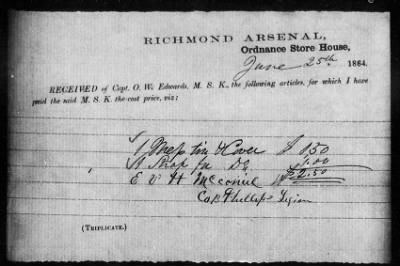 RICHMOND ARSENAL,
Ordnance Store House,
June 25th 1864.
RECEIVED of Capt. O. W. Edwards, M. S. K., the following articles, for which I have
paid the said M. S. K. the cost price, viz:
1 Mess tin & Cover $ 1.50
1 Strap for Do 1.00
$2.50
E V H
Capt Phillips Legion
(TRIPLICATE.)